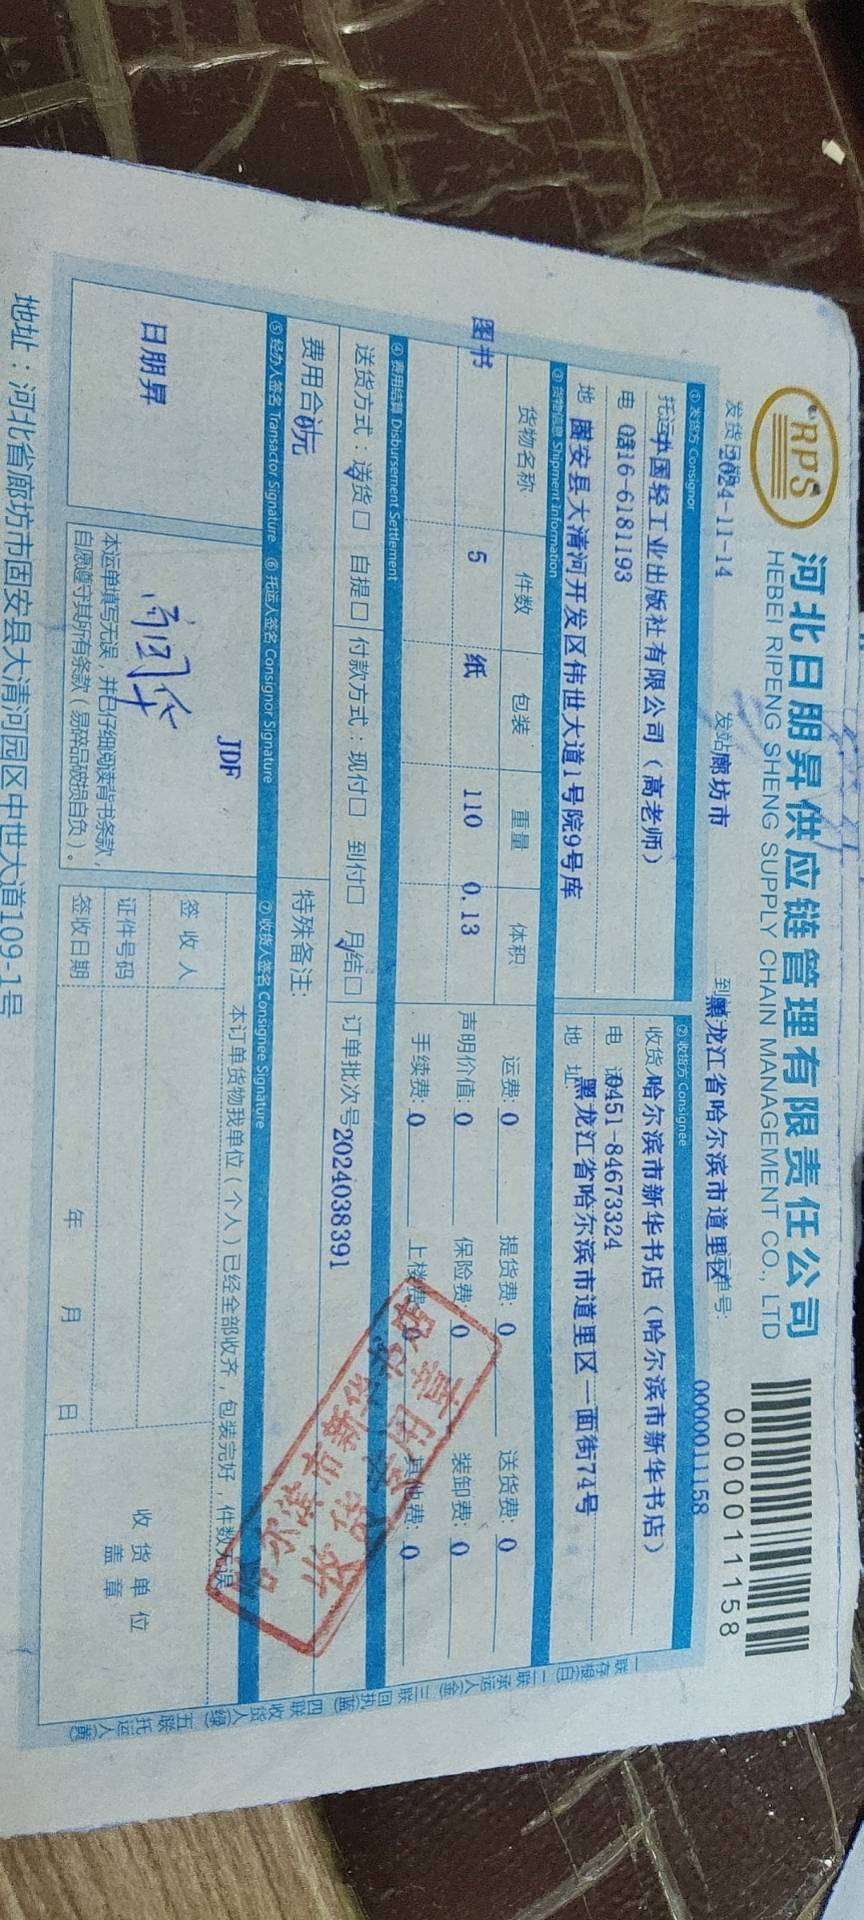 RPS
河北日朋昇供应链管理有限责任公司
HEBEI RIPENG SHENG SUPPLY CHAIN MANAGEMENT CO., LTD
0000011158
发货日期 2024-11-14 发站 廊坊市 到 黑龙江省哈尔滨市道里区 单号: 0000011158
① 发货方 Consignor ② 收货方 Consignee
托运 中国轻工业出版社有限公司（高老师） 收货 哈尔滨市新华书店（哈尔滨市新华书店）
电 0316-6181193 电 话 0451-84673324
地 固安县大清河开发区伟世大道1号院9号库 地 址 黑龙江省哈尔滨市道里区一面街74号
③ 货物信息 Shipment Information
货物名称 件数 包装 重量 体积 运费: 0 提货费: 0 送货费: 0
图书 5 纸 110 0.13 声明价值: 0 保险费: 0 装卸费: 0
手续费: 0 上楼费: 0 其他费: 0
④ 费用结算 Disbursement Settlement
送货方式：送货☐ 自提☐ 付款方式：现付☐ 到付☐ 月结☐ 订单批次号 2024038391
费用合计 0元 特殊备注:
⑤ 经办人签名 Transactor Signature ⑥ 托运人签名 Consignor Signature ⑦ 收货人签名 Consignee Signature
JDF
本订单货物我单位（个人）已经全部收齐，包装完好，件数无误
日朋昇
签收人
证件号码
签收日期 年 月 日
收货单位
盖章
本运单填写无误，并已仔细阅读背书条款，
自愿遵守其所有条款（易碎品破损自负）。
哈尔滨市新华书店
专用章
一联存根(白) 二联承运人(金) 三联回执(蓝) 四联收货人(绿) 五联托运人(黄)
地址：河北省廊坊市固安县大清河园区中世大道109-1号